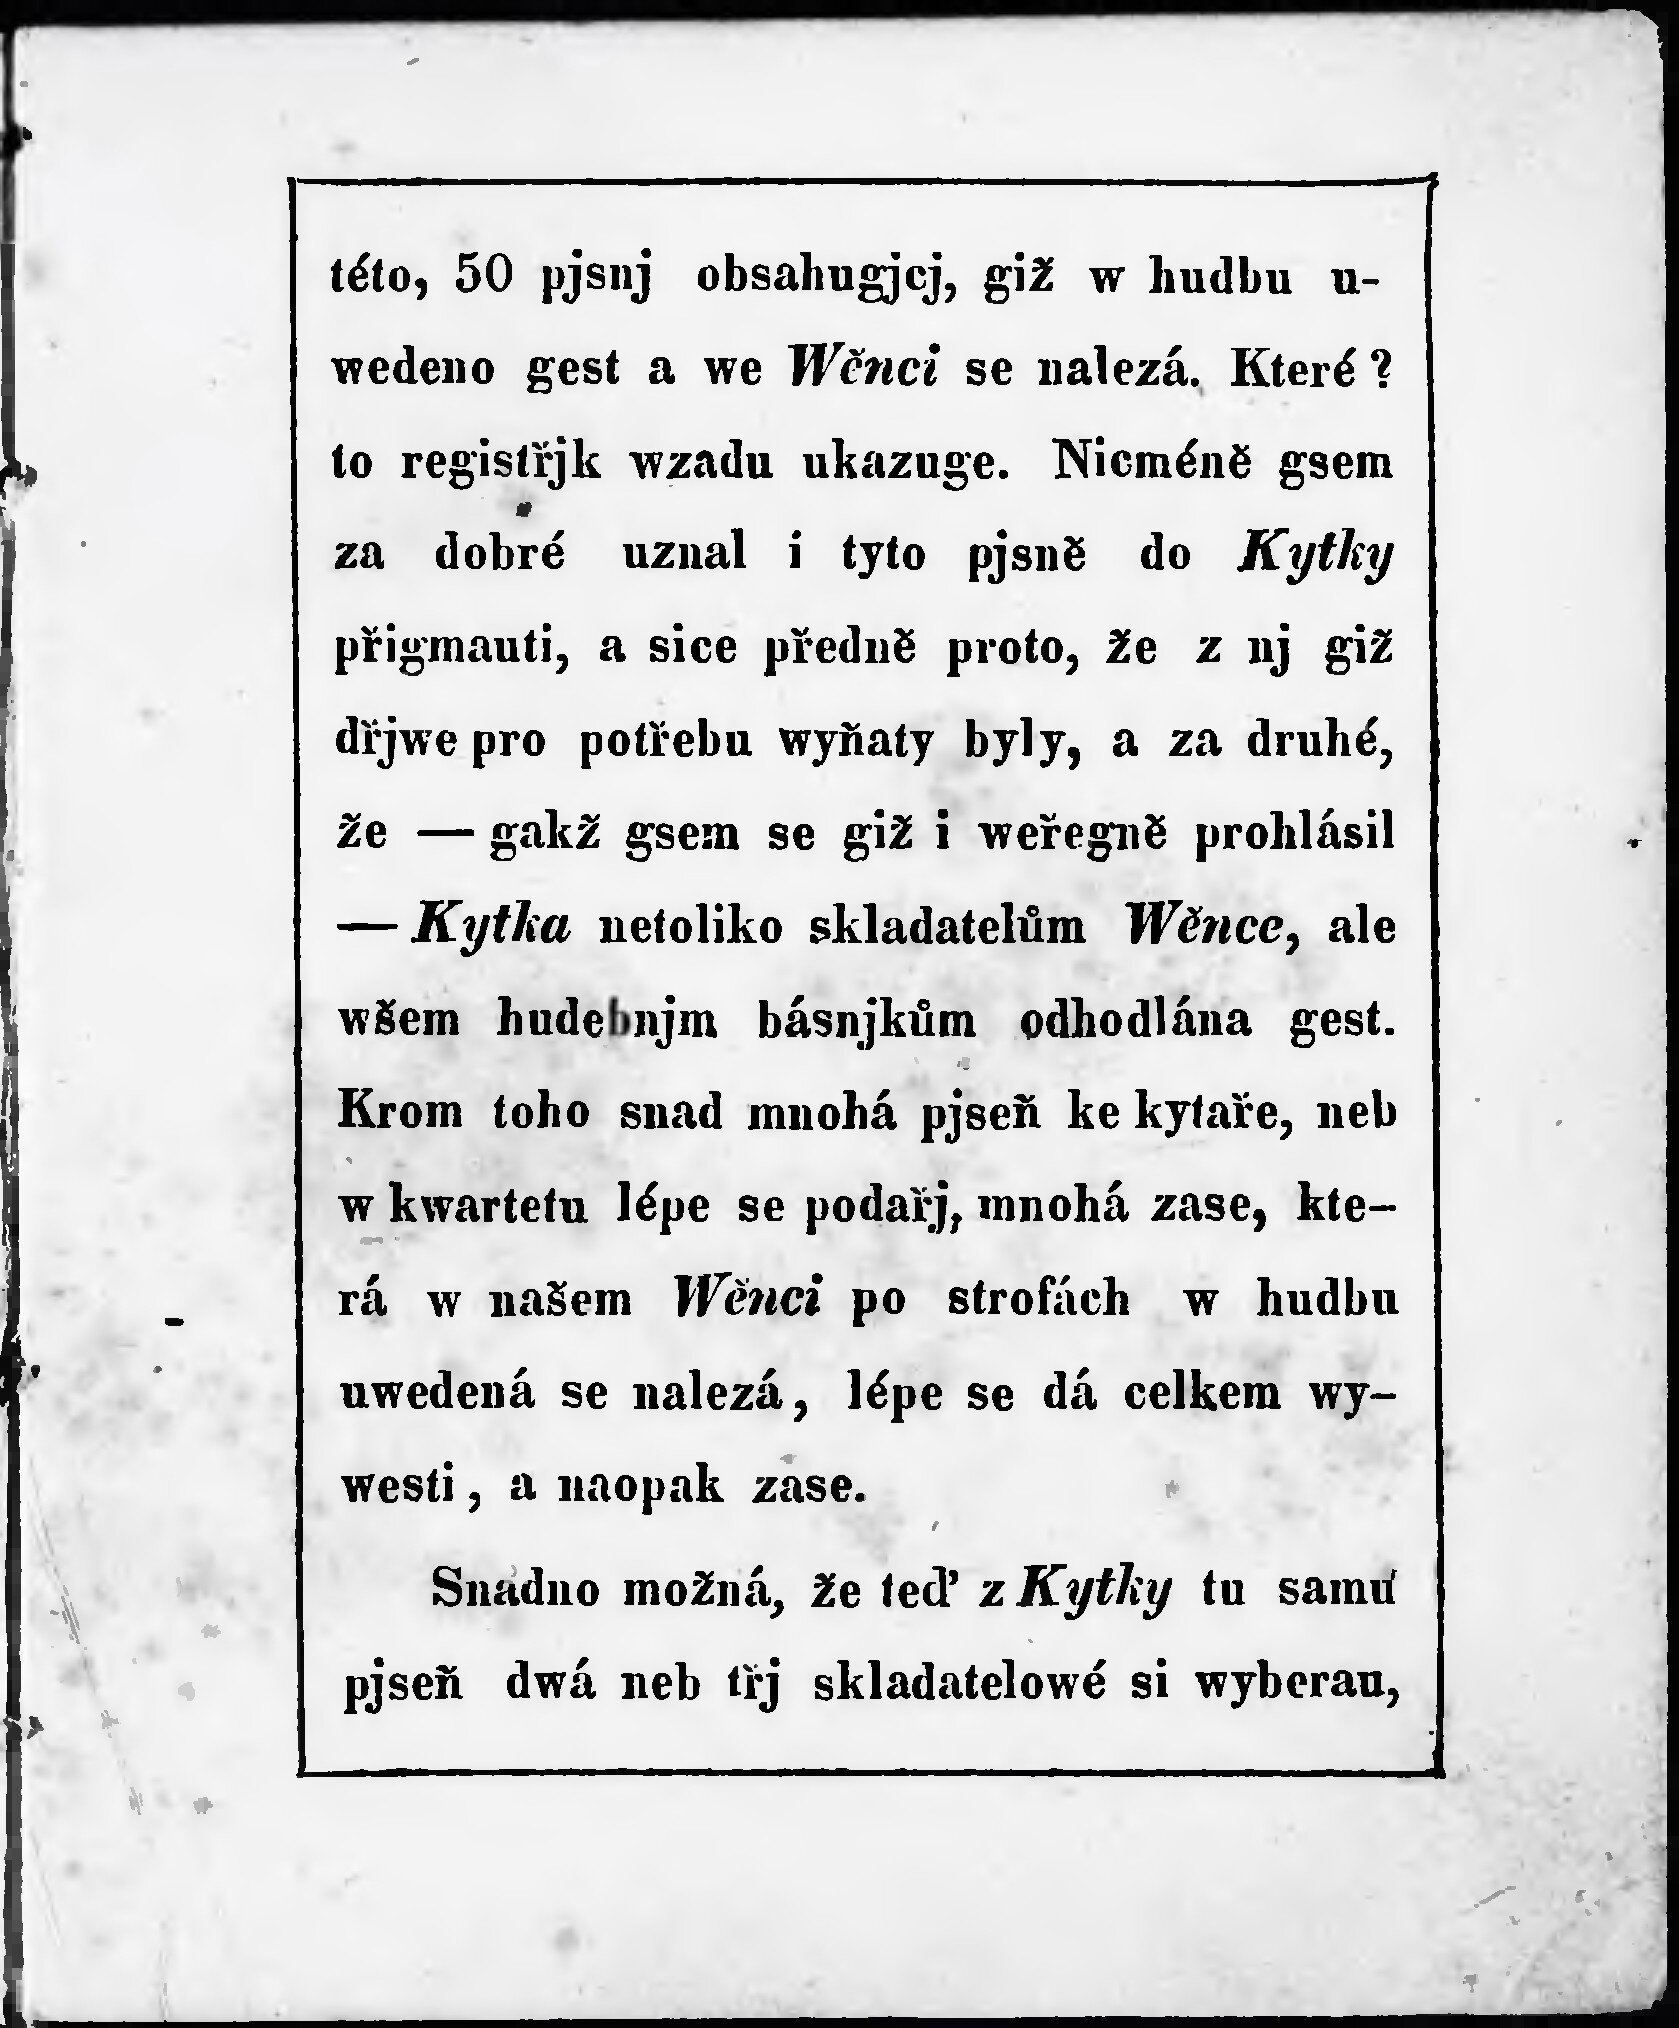 této, 50 pjsnj obsahugjcj, giž w hudbu u-
wedeno gest a we Wěnci se nalezá. Které?
to registřjk wzadu ukazuge. Nicméně gsem
za dobré uznal i tyto pjsně do Kytky
přigmauti, a sice předně proto, že z nj giž
dřjwe pro potřebu wyňaty byly, a za druhé,
že — gakž gsem se giž i weřegně prohlásil
— Kytka netoliko skladatelům Wěnce, ale
wšem hudebnjm básnjkům odhodlána gest.
Krom toho snad mnohá pjseň ke kytaře, neb
w kwartetu lépe se podařj, mnohá zase, kte-
rá w našem Wěnci po strofách w hudbu
uwedená se nalezá, lépe se dá celkem wy-
westi, a naopak zase.
Snadno možná, že teď z Kytky tu samu
pjseň dwá neb třj skladatelowé si wyberau,